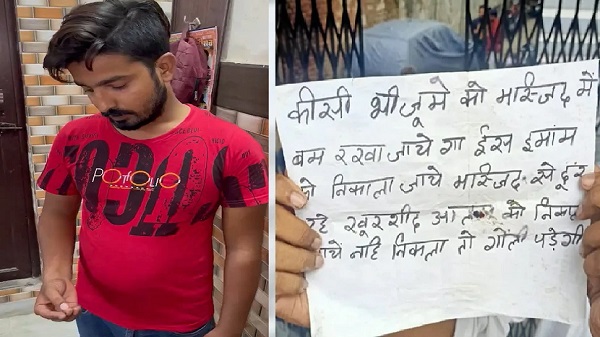 POTFOLIO
कीसी भी जूमे को मस्जिद में
बम रखा जाये गा ईस इमाम
को निकाला जाये मस्जिद से दूर
रहे खूरशीद आलम को निकाला
जाये नाहि निकला तो गोली पड़ेगी